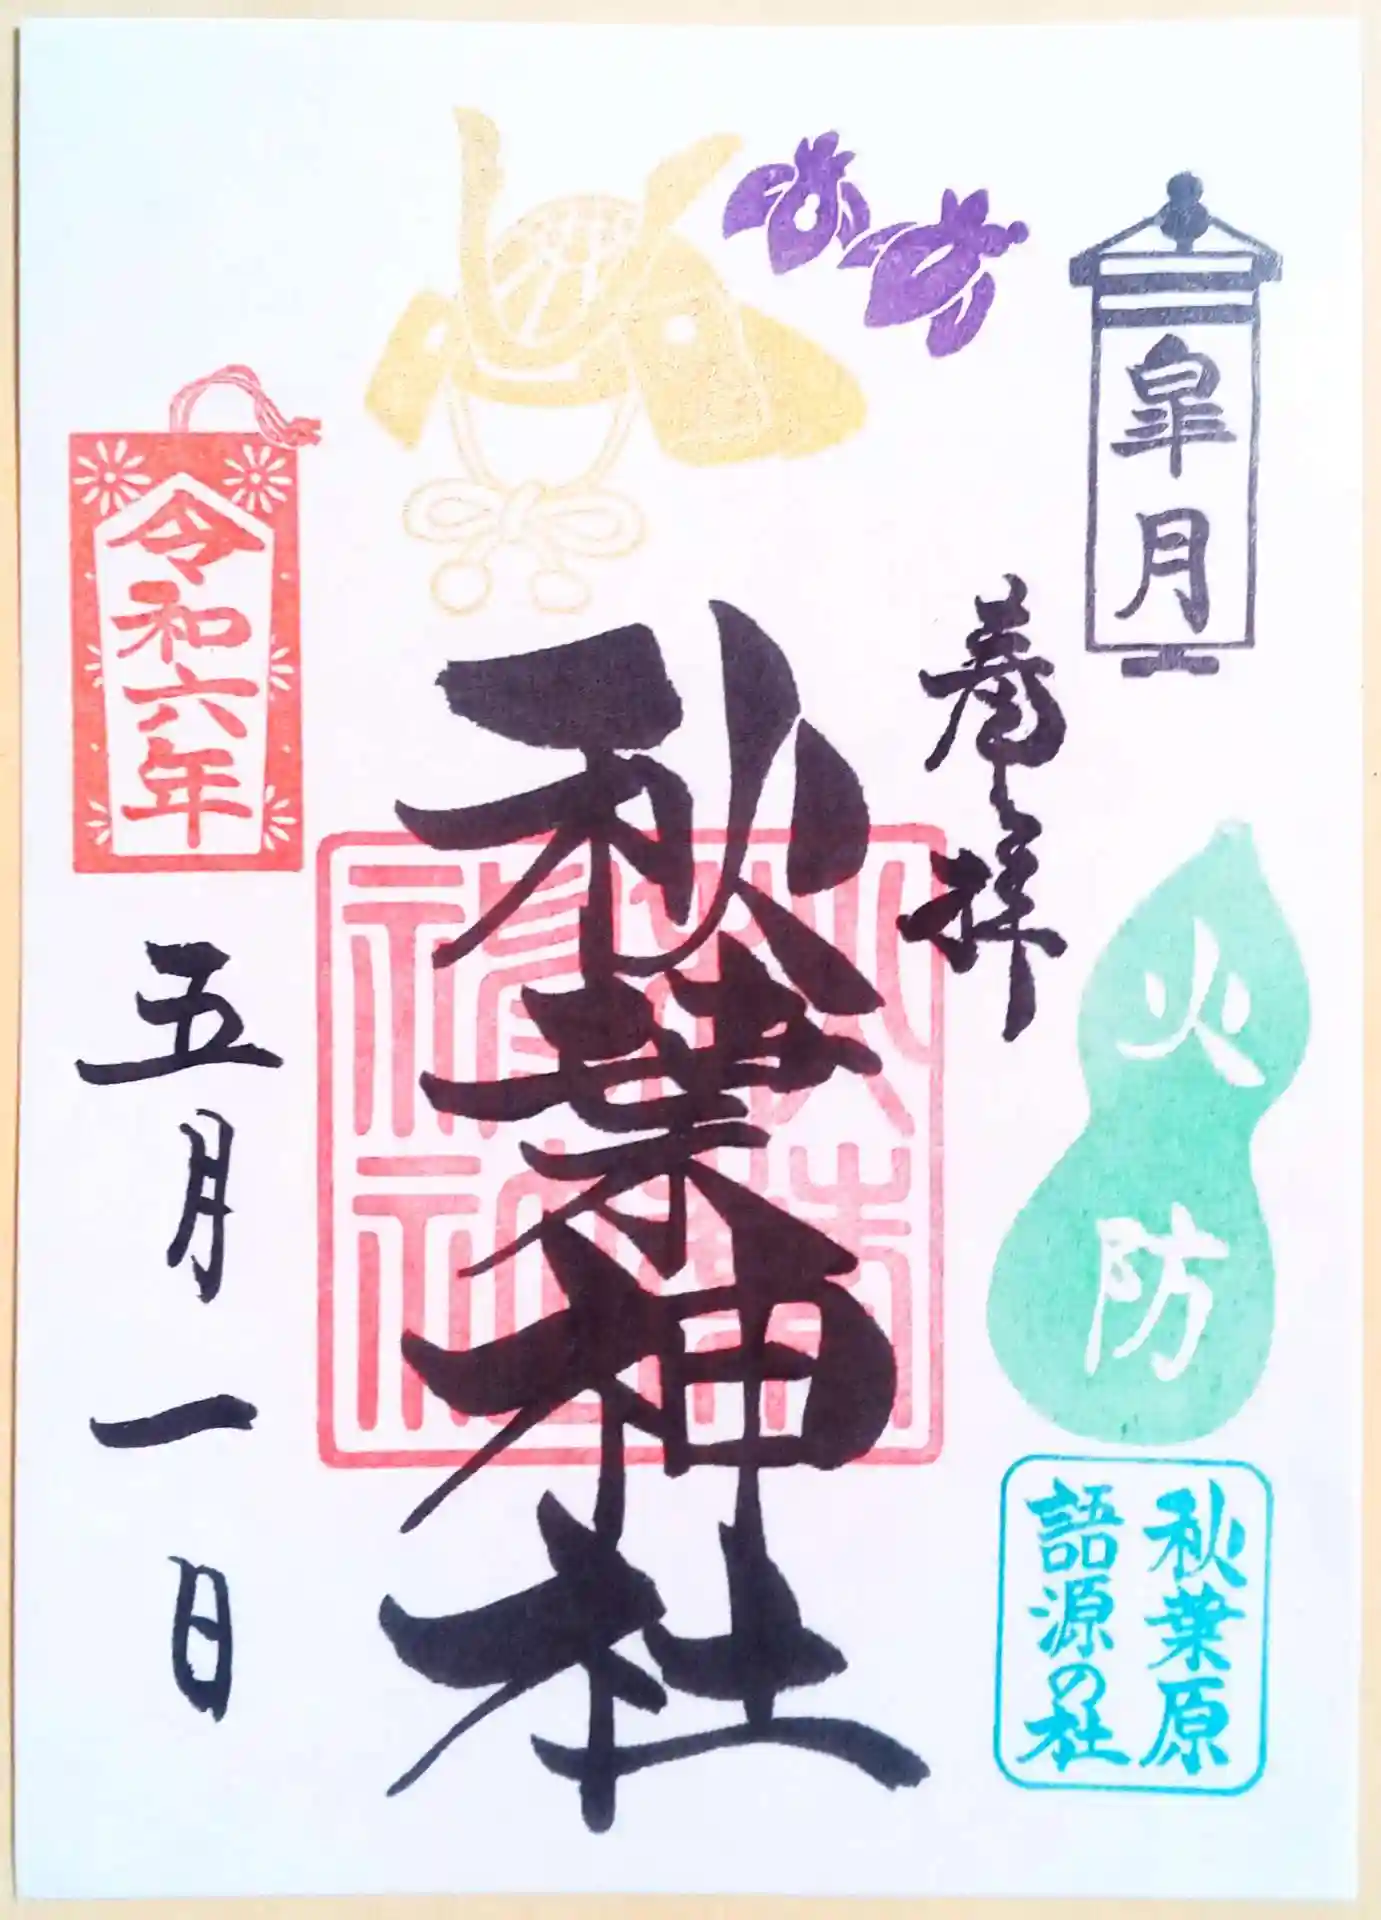 皐月
奉拝
火防
秋葉原
語源の社
秋葉神社
秋葉神社
令和六年
五月一日